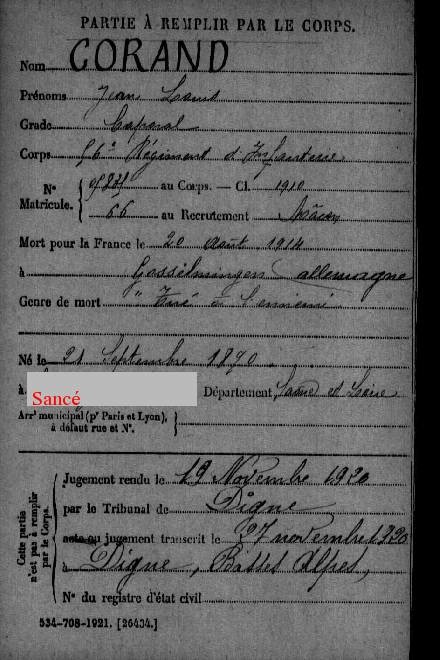 PARTIE À REMPLIR PAR LE CORPS.
Nom GORAND
Prénoms Jean Louis
Grade Caporal
Corps 56e Régiment d'Infanterie
N° Matricule. { au Corps. — Cl. 1910
66 au Recrutement Mâcon
Mort pour la France le 20 Aout 1914
à Gosselmingen allemagne
Genre de mort "Tué à l'ennemi
Né le 21 Septembre 1890
à Sancé Département Saône et Loire
Arrt municipal (pr Paris et Lyon), à défaut rue et N°.
Cette partie n'est pas à remplir par le Corps.
Jugement rendu le 19 Novembre 1920
par le Tribunal de Digne
acte ou jugement transcrit le 27 novembre 1920
à Digne, Basses Alpes,
N° du registre d'état civil
534-708-1921. [26434.]